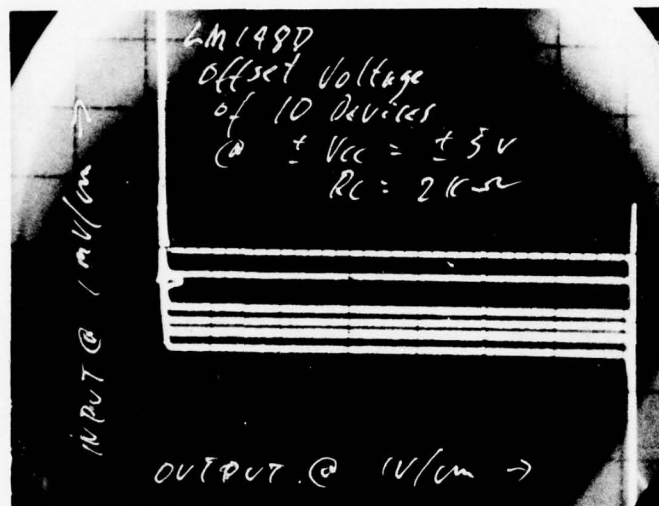 LM148D
Offset Voltage
of 10 Devices
@ ± Vcc = ± 5 V
RL = 2 K Ω
INPUT @ 1 mV/cm →
OUTPUT @ 1V/cm →